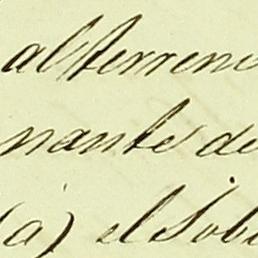 al terreno
nante de
(a) el Sob